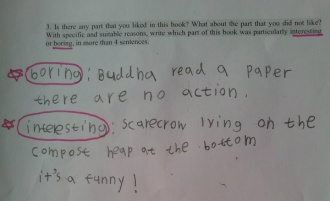 3. Is there any part that you liked in this book? What about the part that you did not like?
With specific and suitable reasons, write which part of this book was particularly interesting
or boring, in more than 4 sentences.
boring: Buddha read a paper
there are no action.
interesting: scarecrow lying on the
compost heap at the bottom
it's a funny!